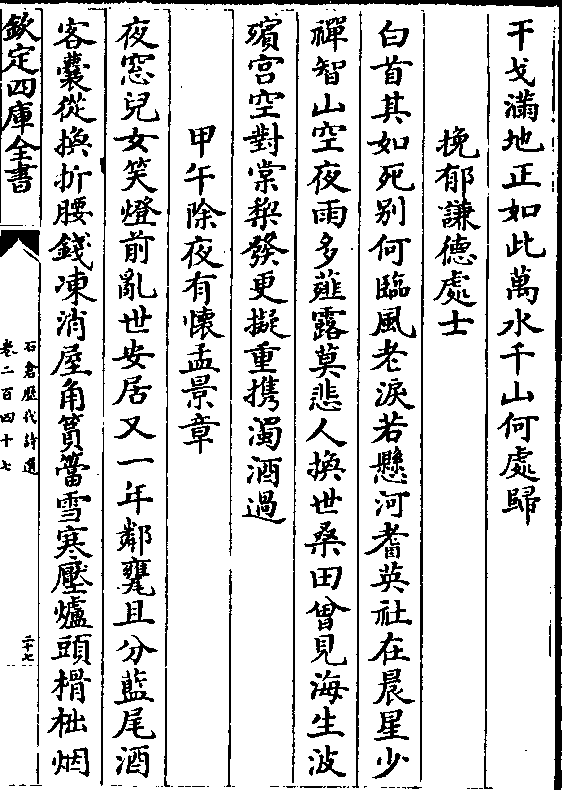 干戈滿地正如此萬水千山何處歸
挽郁謙德處士
白首其如死别何臨風老淚若懸河耆英社在晨星少
禪智山空夜雨多薤露莫悲人換世桑田曾見海生波
殯宫空對棠梨發更擬重携濁酒過
甲午除夜有懷孟景章
夜窓兒女笑燈前亂世安居又一年鄰甕且分藍尾酒
客囊從換折腰錢凍消屋角篔簹雪寒壓爐頭榾柮烟
欽定四庫全書
石倉歴代詩選
卷二百四十七
二十七